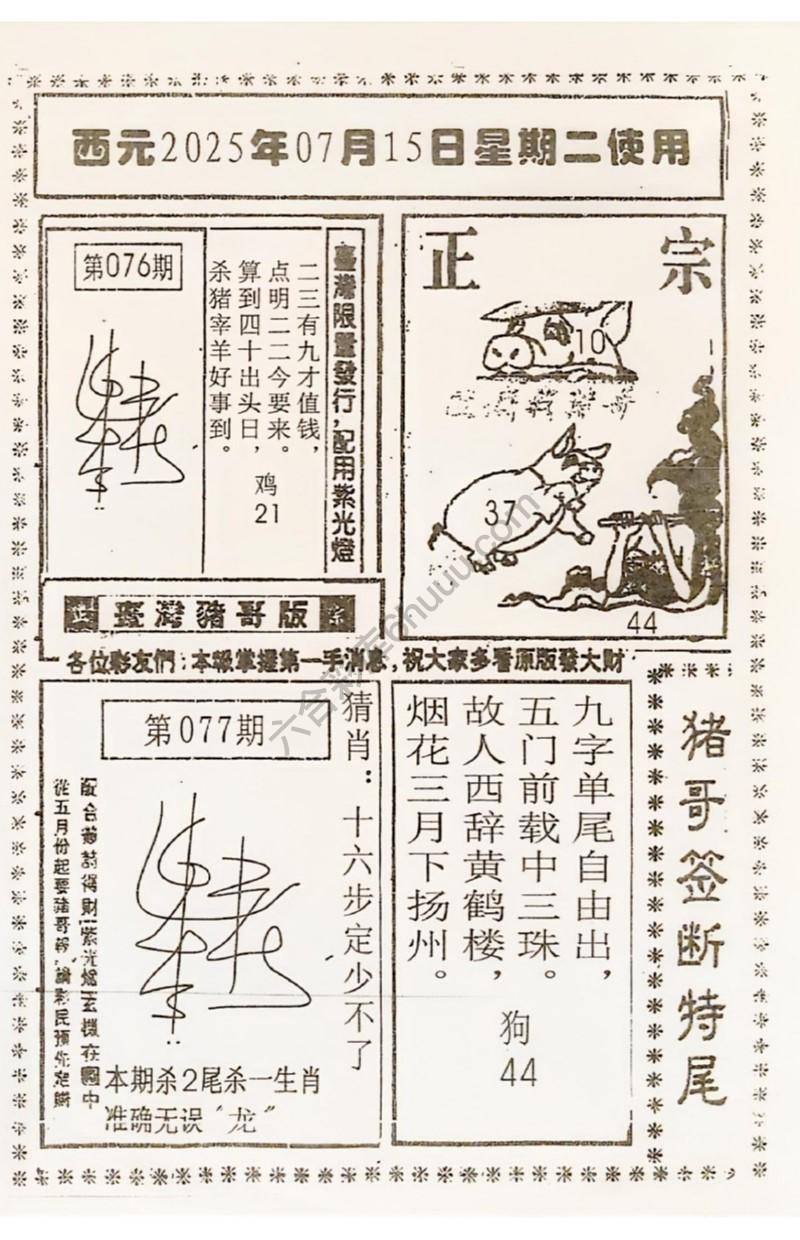 西元2025年07月15日星期二使用
第076期
二三有九才值钱，
点明二二今要来。
算到四十出头日，
杀猪宰羊好事到。
鸡
21
臺灣限量發行，配用紫光燈
正宗
10
37
44
正 臺灣豬哥版 宗
各位彩友們：本報掌握第一手消息，祝大家多看原版發大財
第077期
猜肖：十六步定少不了
配合葡萄得財
紫光燈玄機在圖中
從五月份起要豬哥報
本期杀2尾杀一生肖
准确无误“龙”
九字单尾自由出，
五门前载中三珠。
故人西辞黄鹤楼，
烟花三月下扬州。
狗
44
猪哥签断特尾
六合彩库chuuu.com